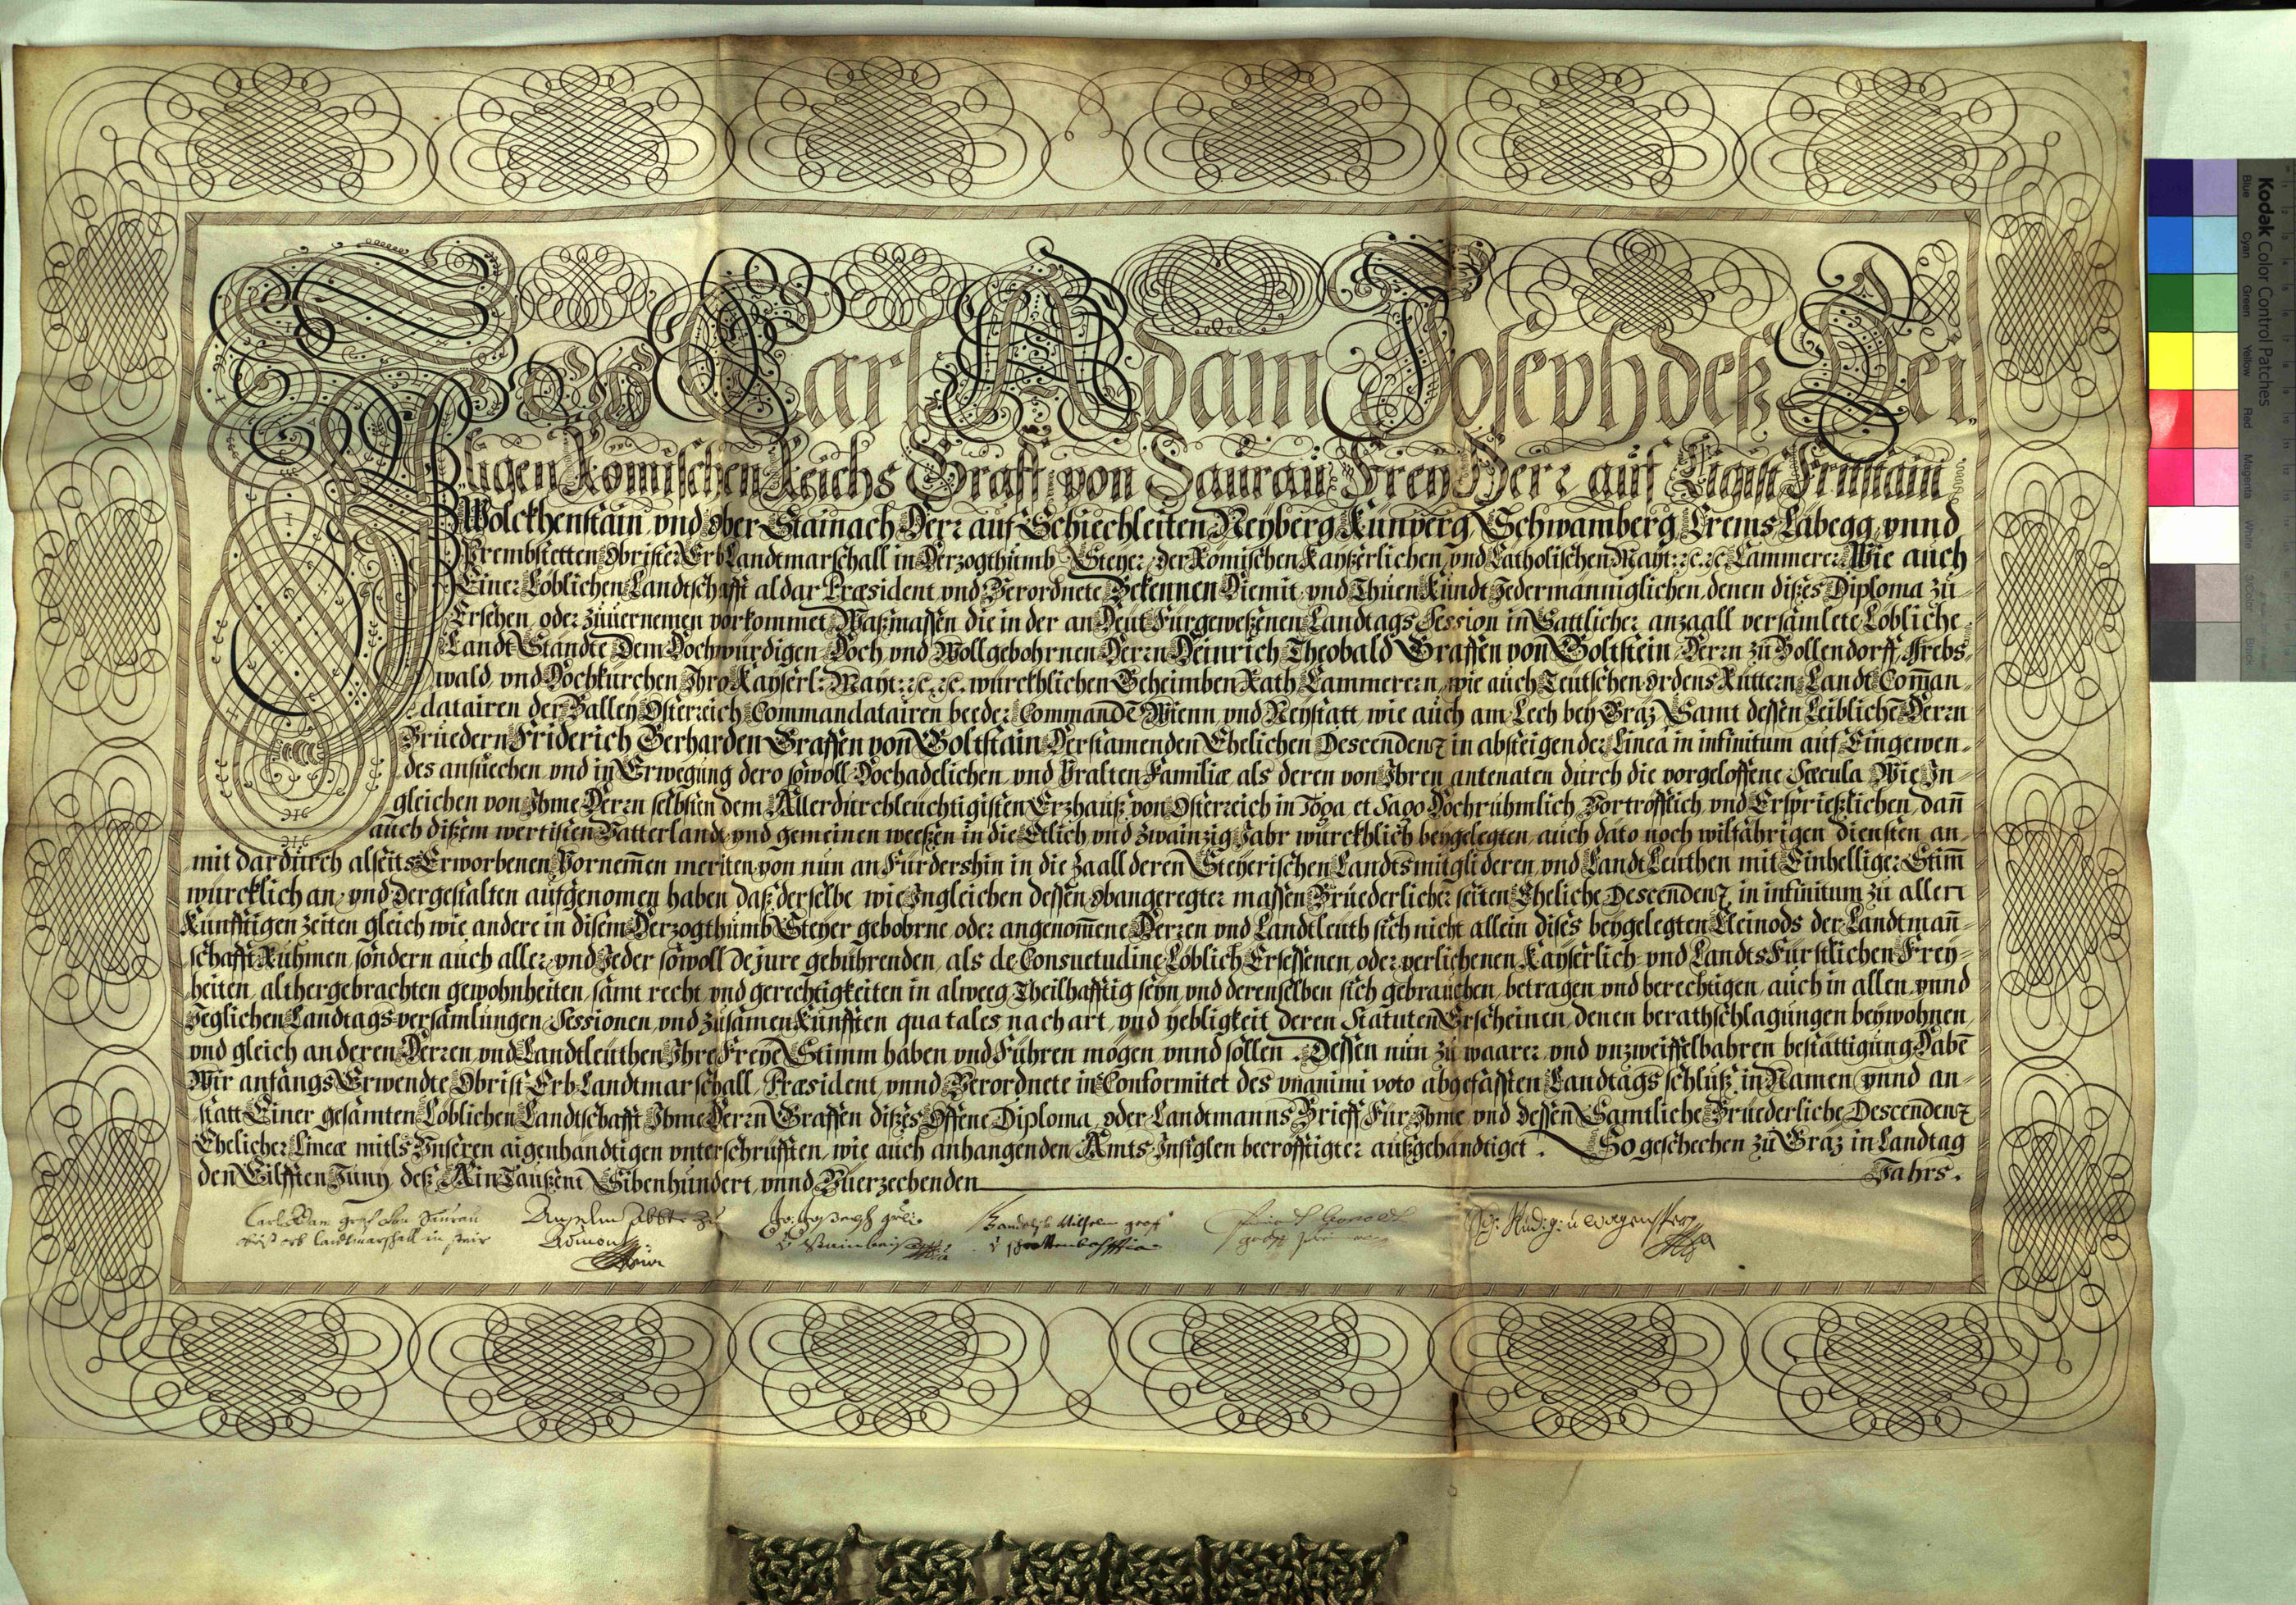 Ich Carl Adam Joseph deß Hei-
ligen Römischen Reichs Graff von Saurau Frey Herr auf Ligist Frustain
Wolckhenstain, vnd Ober Stainach Herr auf Schiechleiten Neyberg Kunperg, Schwamberg Crems Labegg, vnnd
Prembstetten Obrister Erb Landtmarschall in Herzogthumb Steyer, der Römischen Kayßerlichen vnd Catholischen Mayt: ꝛc. ꝛc Cammerer Wie auch
Einer Löblichen Landtschafft aldar Præsident vnd Verordnete Bekennen Hiemit, vnd Thuen Kundt Jedermänniglichen, denen dißes Diploma zu
Ersehen, oder zuuernemen vorkommet, Waßmassen die in der an Heut Fürgeweßenen Landtags Session in Sattlicher anzaall versamlete Löbliche
Landt Stände Dem Hochwürdigen Hoch vnd Wollgebohrnen Herrn Heinrich Theobald Graffen von Goltstein Herrn zu Bollendorff, Krebs-
wald, vnd Hochkürchen Ihro Kayserl: Mayt: ꝛc. ꝛc. würckhlichen Geheimben Rath Cammerern, wie auch Teutschen Ordens Rüttern Landt Com̄an-
datairen der Balley Österreich Commandatairen beeder Commandē Wienn vnd Neystatt, wie auch am Lech bey Graz, Samt dessen Leiblichē Herrn
Bruedern Friderich Gerharden Graffen von Goltstain Herstamenden Ehelichen Descendenz in absteigender Linea in infinitum auf Eingewen-
des ansuechen, vnd in Erwegung dero sowoll Hochadelichen vnd Vralten Familiæ als deren von Ihren antenaten durch die vorgeloffene Sæcula Wie In-
gleichen von Ihme Herrn selbsten dem Allerdurchleuchtigisten Erzhauß von Österreich in Toga et Sago Hochrühmlich Vortröfflich, vnd Ersprießlichen, dan̄
auch dißem wertisten Vatterlandt, vnd gemeinen weeßen in die Etlich vnd zwainzig Jahr würckhlich beygelegten, auch dato noch wilfährigen diensten, an-
mit dardurch alseits Erworbenen Vornem̄en meriten, von nun an Fürdershin in die zaall deren Steyerischen Landtsmitglideren, vnd Landt Leuthen mit Einhelliger Stim̄
würcklich an- vnd Dergestalten aufgenomen haben, daß derselbe, wie Ingleichen dessen obangeregter massen Brüederlicher seiten Eheliche Descendenz, in infinitum zu allen
Künfftigen zeiten gleich wie andere in disem Herzogthumb Steyer gebohrne, oder angenom̄ene Herren vnd Landtleuth sich nicht allein dises beygelegten Kleinods der Landtman̄-
schafft Rühmen, sondern auch aller, vnd Jeder sowoll de jure gebührenden, als de Consuetudine Löblich Ersessenen, oder verlichenen Kayserlich- vnd Landts Fürstlichen Frey-
heiten, althergebrachten gewohnheiten, samt recht, vnd gerechtigkeiten in alweeg Theilhafftig seyn, vnd derenselben sich gebrauchen, betragen vnd berechtigen, auch in allen, vnnd
Jeglichen Landtags versamlungen, Sessionen, vnd zusamen Künfften qua tales nach art, vnd yebligkeit deren Statuten Erscheinen, denen berathschlagungen beywohnen
vnd gleich anderen Herren vnd Landtleuthen Ihre Freye Stimm haben, vnd Führen mögen, vnnd sollen. Dessen nun zu waarer, vnd vnzweiffelbahren bestättigung Habē
Wir anfangs Erwendte Obrist Erb Landtmarschall, Præsident, vnnd Verordnete in Conformitet des vnanimi voto abgefassten Landtags schluß, in Namen, vnnd an-
statt Einer gesamten Löblichen Landtschafft Ihme Herrn Graffen dißes Offene Diploma, oder Landtmanns Brieff Für Ihme, vnd dessen Samtliche Brüederliche Descendenz
Ehelicher Lineæ mitls Vnseren aigenhändtigen vnterschrüfften, wie auch anhangenden Ambts Insiglen becröfftigter außgehändtiget. So geschechen zu Graz in Landtag
den Eilfften Juny, deß Ain Taußent Sibenhundert, vnnd Vüerzechenden Jahrs.
Carl Adam graf von Saurau
obrist erb landtmarschall in steir
Anselm Abbt zu
Admont
Wagensperg
Kodak Color Control Patches
Blue Cyan Green Yellow Red Magenta White 3/Color Black